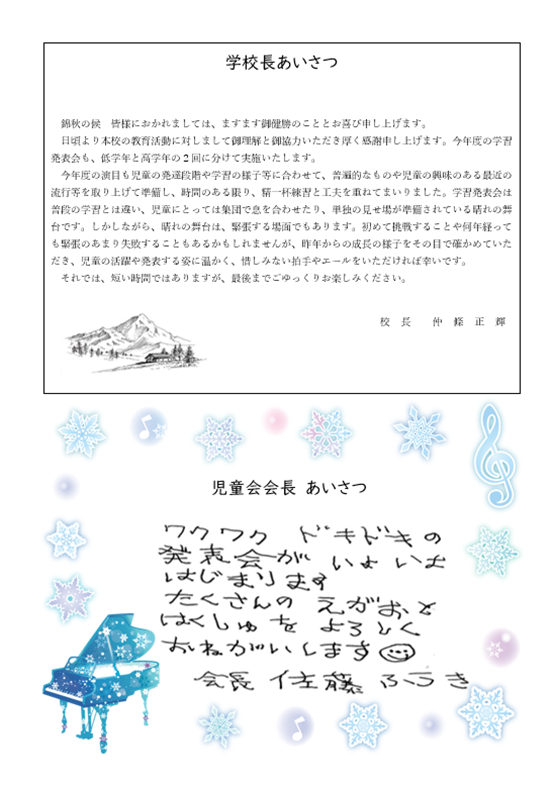 学校長あいさつ
錦秋の候　皆様におかれましては、ますます御健勝のこととお喜び申し上げます。
日頃より本校の教育活動に対しまして御理解と御協力いただき厚く感謝申し上げます。今年度の学習
発表会も、低学年と高学年の２回に分けて実施いたします。
今年度の演目も児童の発達段階や学習の様子等に合わせて、普遍的なものや児童の興味のある最近の
流行等を取り上げて準備し、時間のある限り、精一杯練習と工夫を重ねてまいりました。学習発表会は
普段の学習とは違い、児童にとっては集団で息を合わせたり、単独の見せ場が準備されている晴れの舞
台です。しかしながら、晴れの舞台は、緊張する場面でもあります。初めて挑戦することや何年経って
も緊張のあまり失敗することもあるかもしれませんが、昨年からの成長の様子をその目で確かめていた
だき、児童の活躍や発表する姿に温かく、惜しみない拍手やエールをいただければ幸いです。
それでは、短い時間ではありますが、最後までごゆっくりお楽しみください。
校　長　仲　條　正　輝
児童会会長 あいさつ
ワクワク ドキドキの
発表会が いよいよ
はじまります
たくさんの えがおと
はくしゅを よろしく
おねがいします
会長 佐藤 ふうき